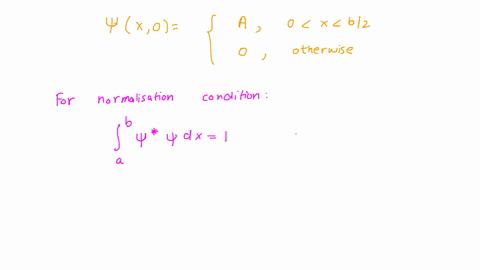 Ψ(x,0) = { A, 0 < x < b/2
0, otherwise
For normalisation condition:
∫ₐᵇ Ψ* Ψ dx = 1